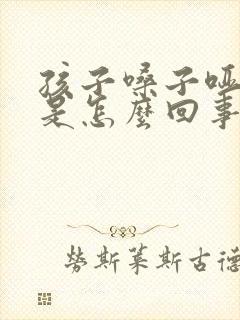 孩子嗓子哑
是怎麽回事
劳斯莱斯古德